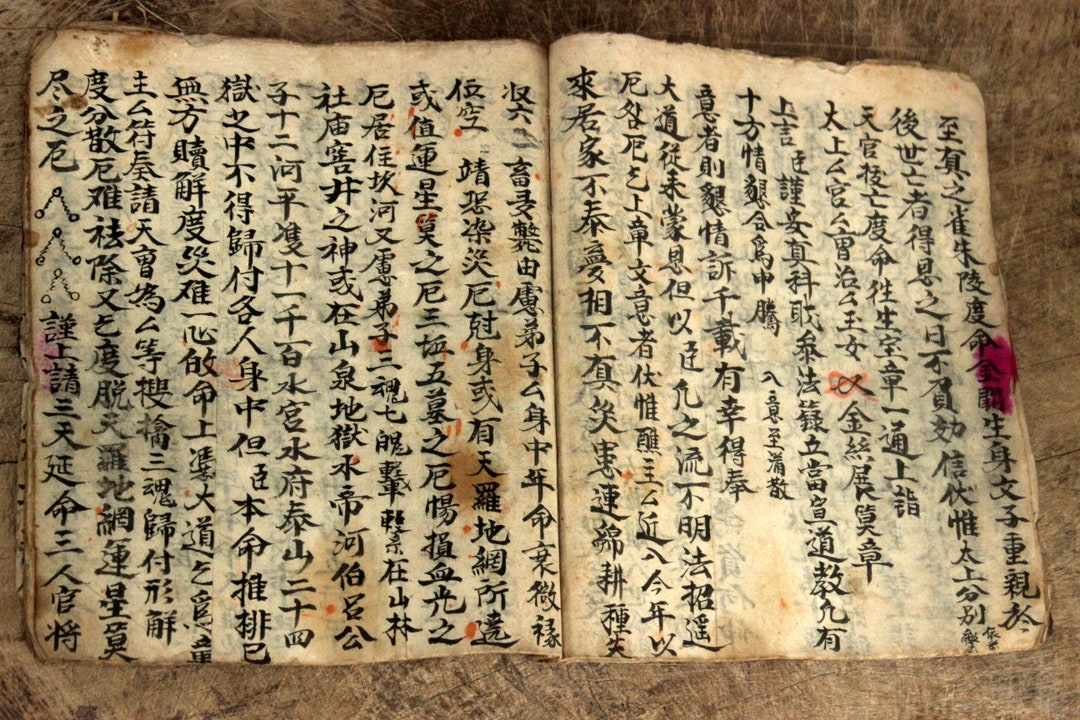 至真之雀朱陵度命金開生身文子重親於
後世亡者得恩之日不負効信伏惟太上分別
天官投亡度命往生室章一通上詣
太上厶宮厶曹治厶王女以金絲展奠章
上言臣謹妄真科耿叅法籙立當宣道教允有
十方情懇合為申騰入意至蒲散
意者則懇情訴千載有幸得奉
大道從来蒙恩但以臣允之流不明法招遥
厄各厄乞上章文意者伏惟醮主厶近入今年以
來居家不泰夢相不真災患連綿耕種失
収六畜旻斃由慮弟子厶身中年命衰微禄
伍空靖恐染災厄尅身或有天羅地網所遶
或值運星莫之厄三坵五墓之厄惕損血光之
厄居住坎河又慮弟子三魂七魄羈繫在山林
社庙窖井之神或在山泉地獄水帝河伯呂公
子十二河平准十一千一百水宮水府泰山二十四
獄之中不得歸付各人身中但臣本命推排已
無方贖解度災难一心啟命上憑大道乞為
主厶符奏請天曹為厶等搜擒三魂歸付形解
度分散厄难祛除又乞度脱天羅地網運星莫
尽之厄謹上請三天延命三人官將